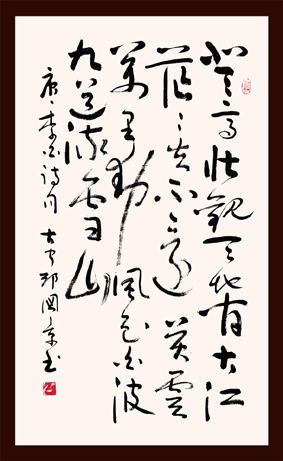 登高壮觀天地間大江
茫〻去不還黄雲
萬里動風色白波
九道流雪山
唐李白詩句 邦國景书